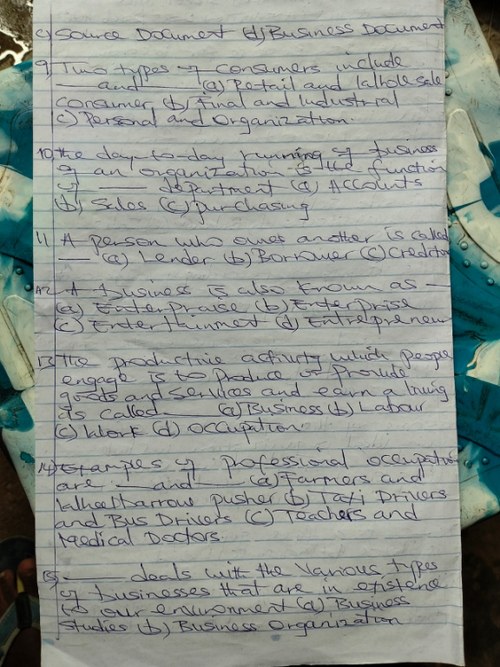 c) Source Document (d) Business Document
9) Two types of consumers include
___ and ___ (a) Retail and Wholesale
consumer (b) Final and Industrial
(c) Personal and Organization.
10. the day-to-day running of business
of an organization is the function
of ___ department (a) Accounts
(b) Sales (c) purchasing
11. A person who owes another is called
___ (a) Lender (b) Borrower (c) Creditor
12. A business is also known as ___
(a) Enterpraise (b) Enterprise
(c) Entertainment (d) Entrepreneur
13. The productive activity which people
engage is to produce or provide
goods and services and earn a living
is called ___ (a) Business (b) Labour
(c) Work (d) Occupation.
14) Examples of professional occupation
are ___ and ___ (a) Farmers and
Wheelbarrow pusher (b) Taxi Drivers
and Bus Drivers (c) Teachers and
Medical Doctors.
15) ___ deals with the various types
of businesses that are in existence
to our environment (a) Business
Studies (b) Business Organization